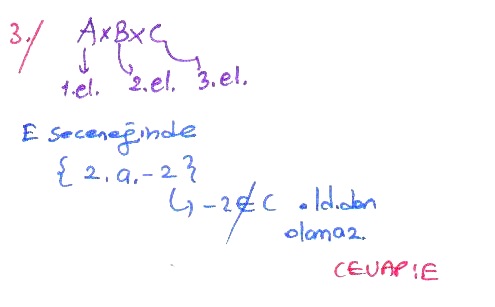 3./ A×B×C
1.el. 2.el. 3.el.
E seçeneğinde
{ 2, a, -2 }
↳ -2 ∉ C old.dan
olamaz.
CEVAP: E